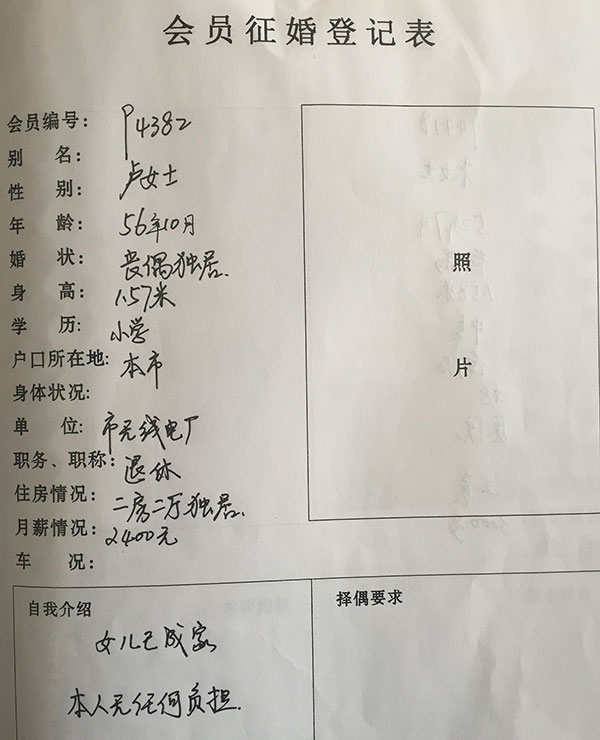 会员征婚登记表
会员编号: P4382
别 名:
性 别: 卢女士
年 龄: 56年10月
婚 状: 丧偶独居.
身 高: 1.57米
学 历: 小学
户口所在地: 本市
身体状况:
单 位: 市无线电厂
职务、职称: 退休
住房情况: 二房二厅独居.
月薪情况: 2400元
车 况:
照
片
自我介绍
女儿已成家
本人无任何负担.
择偶要求